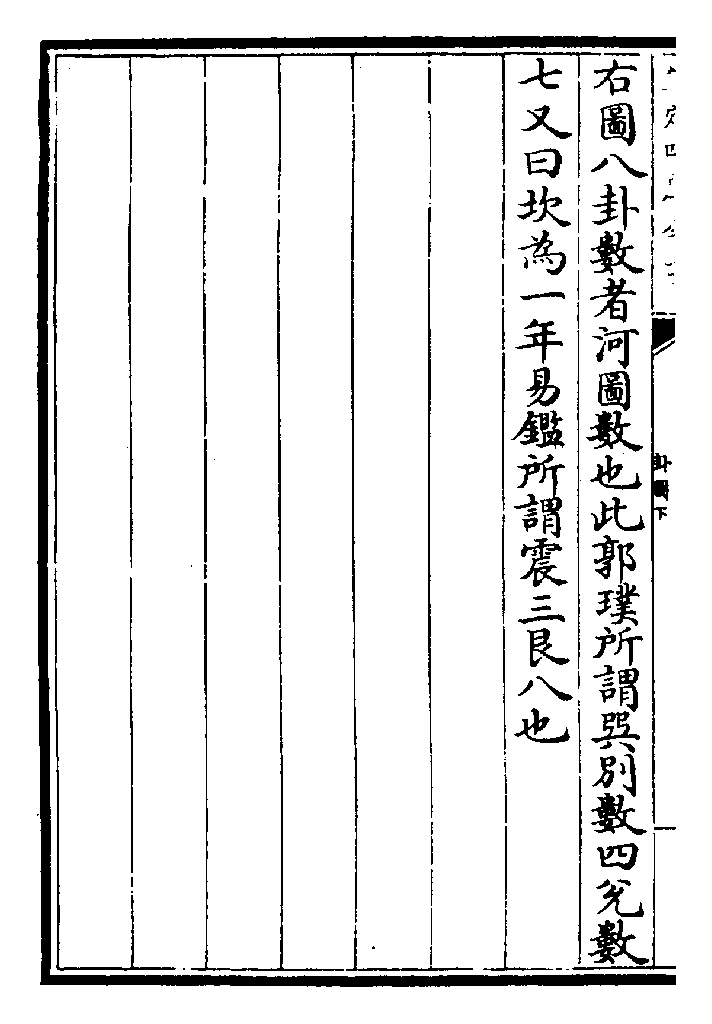 卦圖下
右圖八卦數者河圖數也此郭璞所謂巽別數四兊數
七又曰坎為一年易鑑所謂震三艮八也